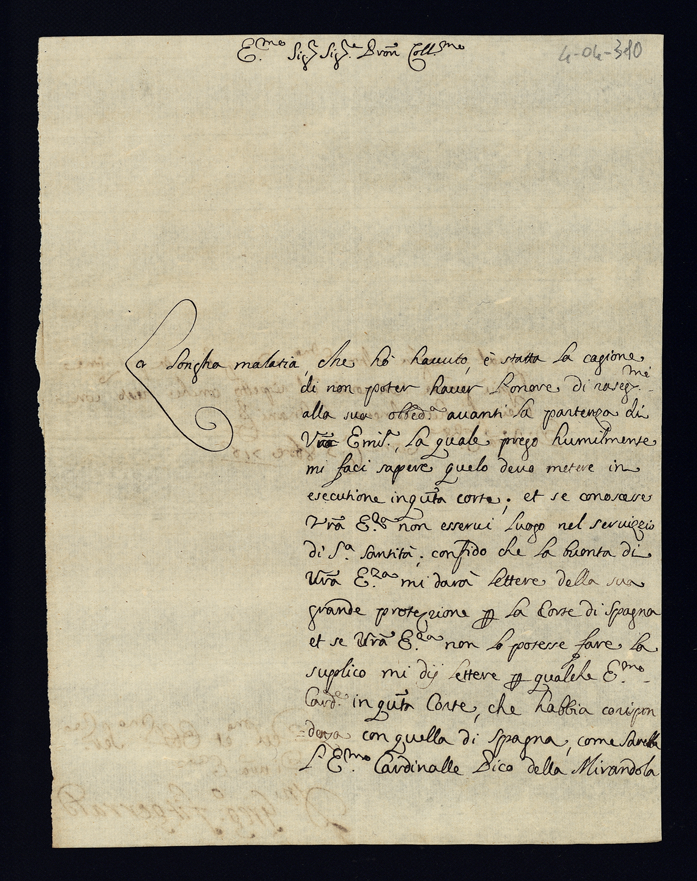 E.mo Sig.r Sig.re Pron Coll.mo
4-04-310
La Longha malatia, che hò hauuto, è statta la cagione
di non poter hauer Lonore di raseg.me
alla sua obbed.a auanti la partenza di
Vra Emi.a, La quale prego humilmente
mi faci sapere quelo deuo metere in
esecutione in qta corte; et se conosesse
Vra E.a non esserui luogo nel seruizio
di S.a Santità; confido che la buonta di
Vra E.za mi darà lettere della sua
grande protezione p La Corte di Spagna
et se Vra E.za non lo potesse fare la
suplico mi dij lettere p qualche E.mo
Card.e in qta Corte, che habbia corispon
=denza con quella di Spagna, come sarebbe
L'E.mo Cardinalle Pico della Mirandola